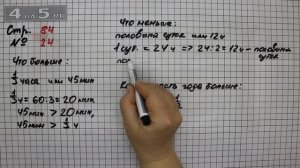 4on5.ru
Стр. 84
№ 24
Что больше:
1/3 часа или 45 мин
1/3 ч = 60:3 = 20 мин
45 мин > 20 мин,
45 мин > 1/3 ч
Что меньше:
половина суток или 12ч
1 сут. = 24 ч => 24:2 = 12ч - половина
суток
пол
года больше: